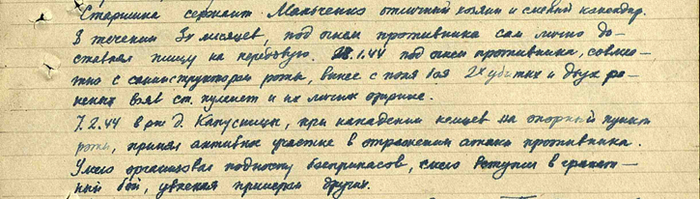 Старшина сержант Мальченко отличный хозяин и смелый командир.
В течении 3х месяцев, под огнем противника сам лично до-
ставлял пищу на передовую. 28.1.44 под огнем противника, совмес-
тно с санинструктором роты, вынес с поля боя 2х убитых и двух ра-
неных взяв ст. пулемет и их личное оружие.
7.2.44 в р-не д. Капустицы, при нападении немцев на опорный пункт
роты, принял активное участие в отражении атаки противника.
Умело организовал подноску боеприпасов, смело вступил в гранат-
ный бой, увлекая примером других.